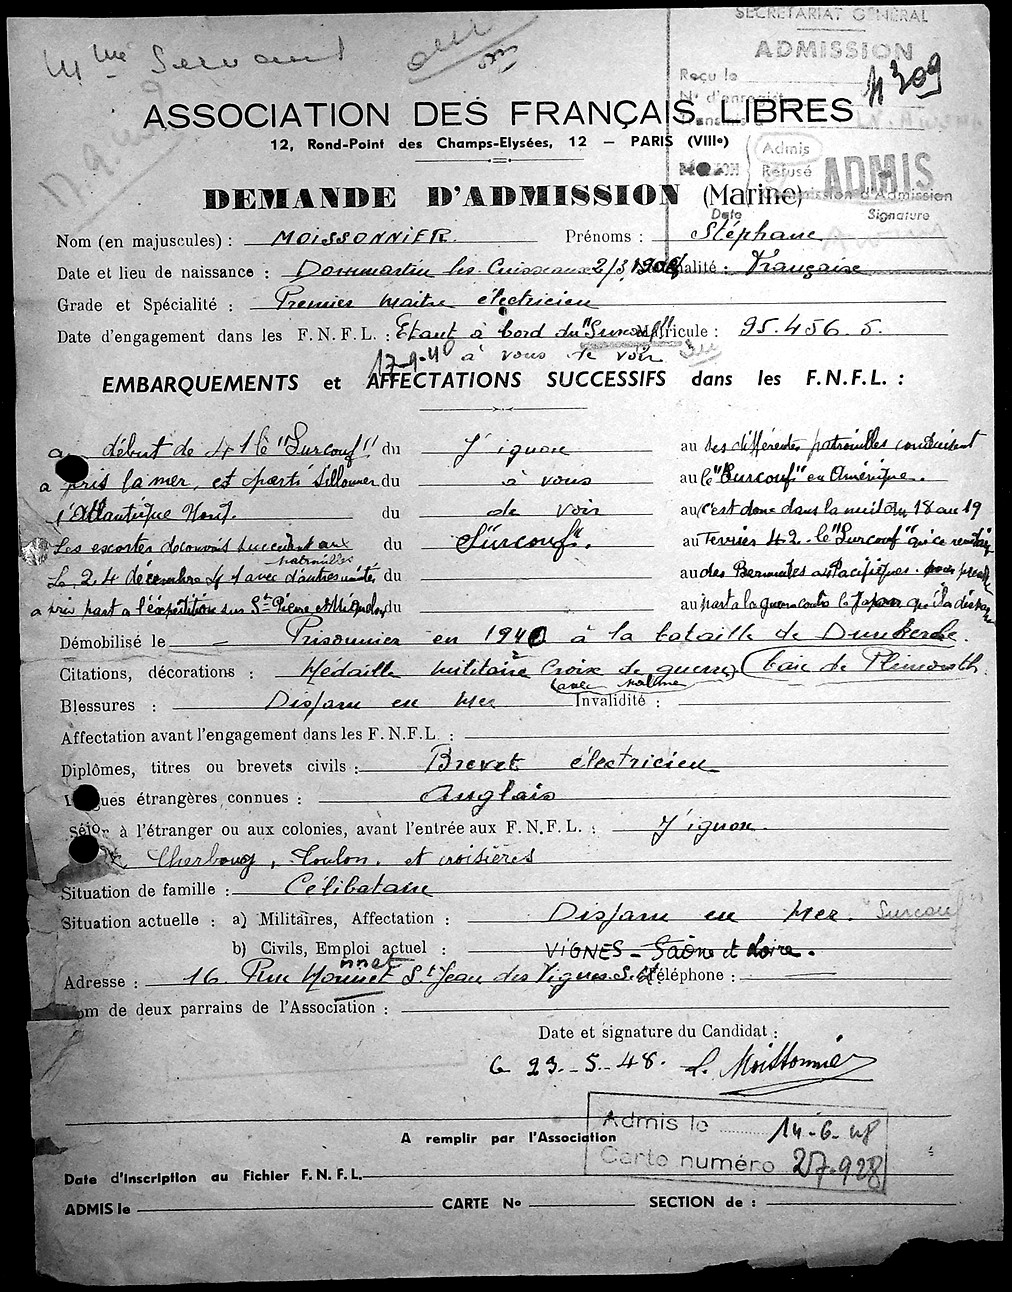 Mme Servant
SECRÉTARIAT GÉNÉRAL
ADMISSION
Reçu le
N° d'enregist
4309
ASSOCIATION DES FRANÇAIS LIBRES
12, Rond-Point des Champs-Elysées, 12 — PARIS (VIIIe)
Admis
Refusé
ADMIS
Commission d'Admission
DEMANDE D'ADMISSION (Marine)
Date Signature
Nom (en majuscules) : MOISSONNIER Prénoms : Stéphane
Date et lieu de naissance : Dommartin les Cuiseaux 2/3/1906 Nationalité : Française
Grade et Spécialité : Premier maitre électricien
Date d'engagement dans les F.N.F.L. : Etant à bord du "Surcouf" Matricule : 95.456.S.
17-9-40 à vous de voir
EMBARQUEMENTS et AFFECTATIONS SUCCESSIFS dans les F.N.F.L. :
au début de 41 le "Surcouf" du J'ignore au les différentes patrouilles conduisent
a pris la mer, est parti sillonner du à vous au le "Surcouf" en Amérique.
l'Atlantique Nord. du de voir au c'est donc dans la nuit du 18 au 19
Les escortes de convois succèdent aux du "Surcouf". au février 42. le "Surcouf" qui
patrouilles
Le 24 décembre 41 avec d'autres unités, du au des Bermudes au Pacifique. pour prendre
a pris part a l'expédition sur St Pierre et Miquelon, du au part a la guerre contre le Japon qu'il a
Démobilisé le Prisonnier en 1940 à la bataille de Dunkerke.
Citations, décorations : Médaille militaire Croix de guerre (baie de Pleimouth.
(avec palme
Blessures : Disparu en Mer Invalidité :
Affectation avant l'engagement dans les F.N.F.L. :
Diplômes, titres ou brevets civils : Brevet électricien
Langues étrangères connues : Anglais
Séjour à l'étranger ou aux colonies, avant l'entrée aux F.N.F.L. : J'ignore.
Cherbourg, Toulon, et croisières
Situation de famille : Célibataire
Situation actuelle : a) Militaires, Affectation : Disparu en Mer. "Surcouf"
b) Civils, Emploi actuel : VIGNES - Saône et Loire.
nnet
Adresse : 16. Rue Monnet St Jean des Vignes S.&L. Téléphone :
Nom de deux parrains de l'Association :
Date et signature du Candidat :
le 23-5-48. L. Moissonnier
Admis le 14-6-48
A remplir par l'Association
Carte numéro 27.928
Date d'inscription au Fichier F.N.F.L.
ADMIS le CARTE No SECTION de :